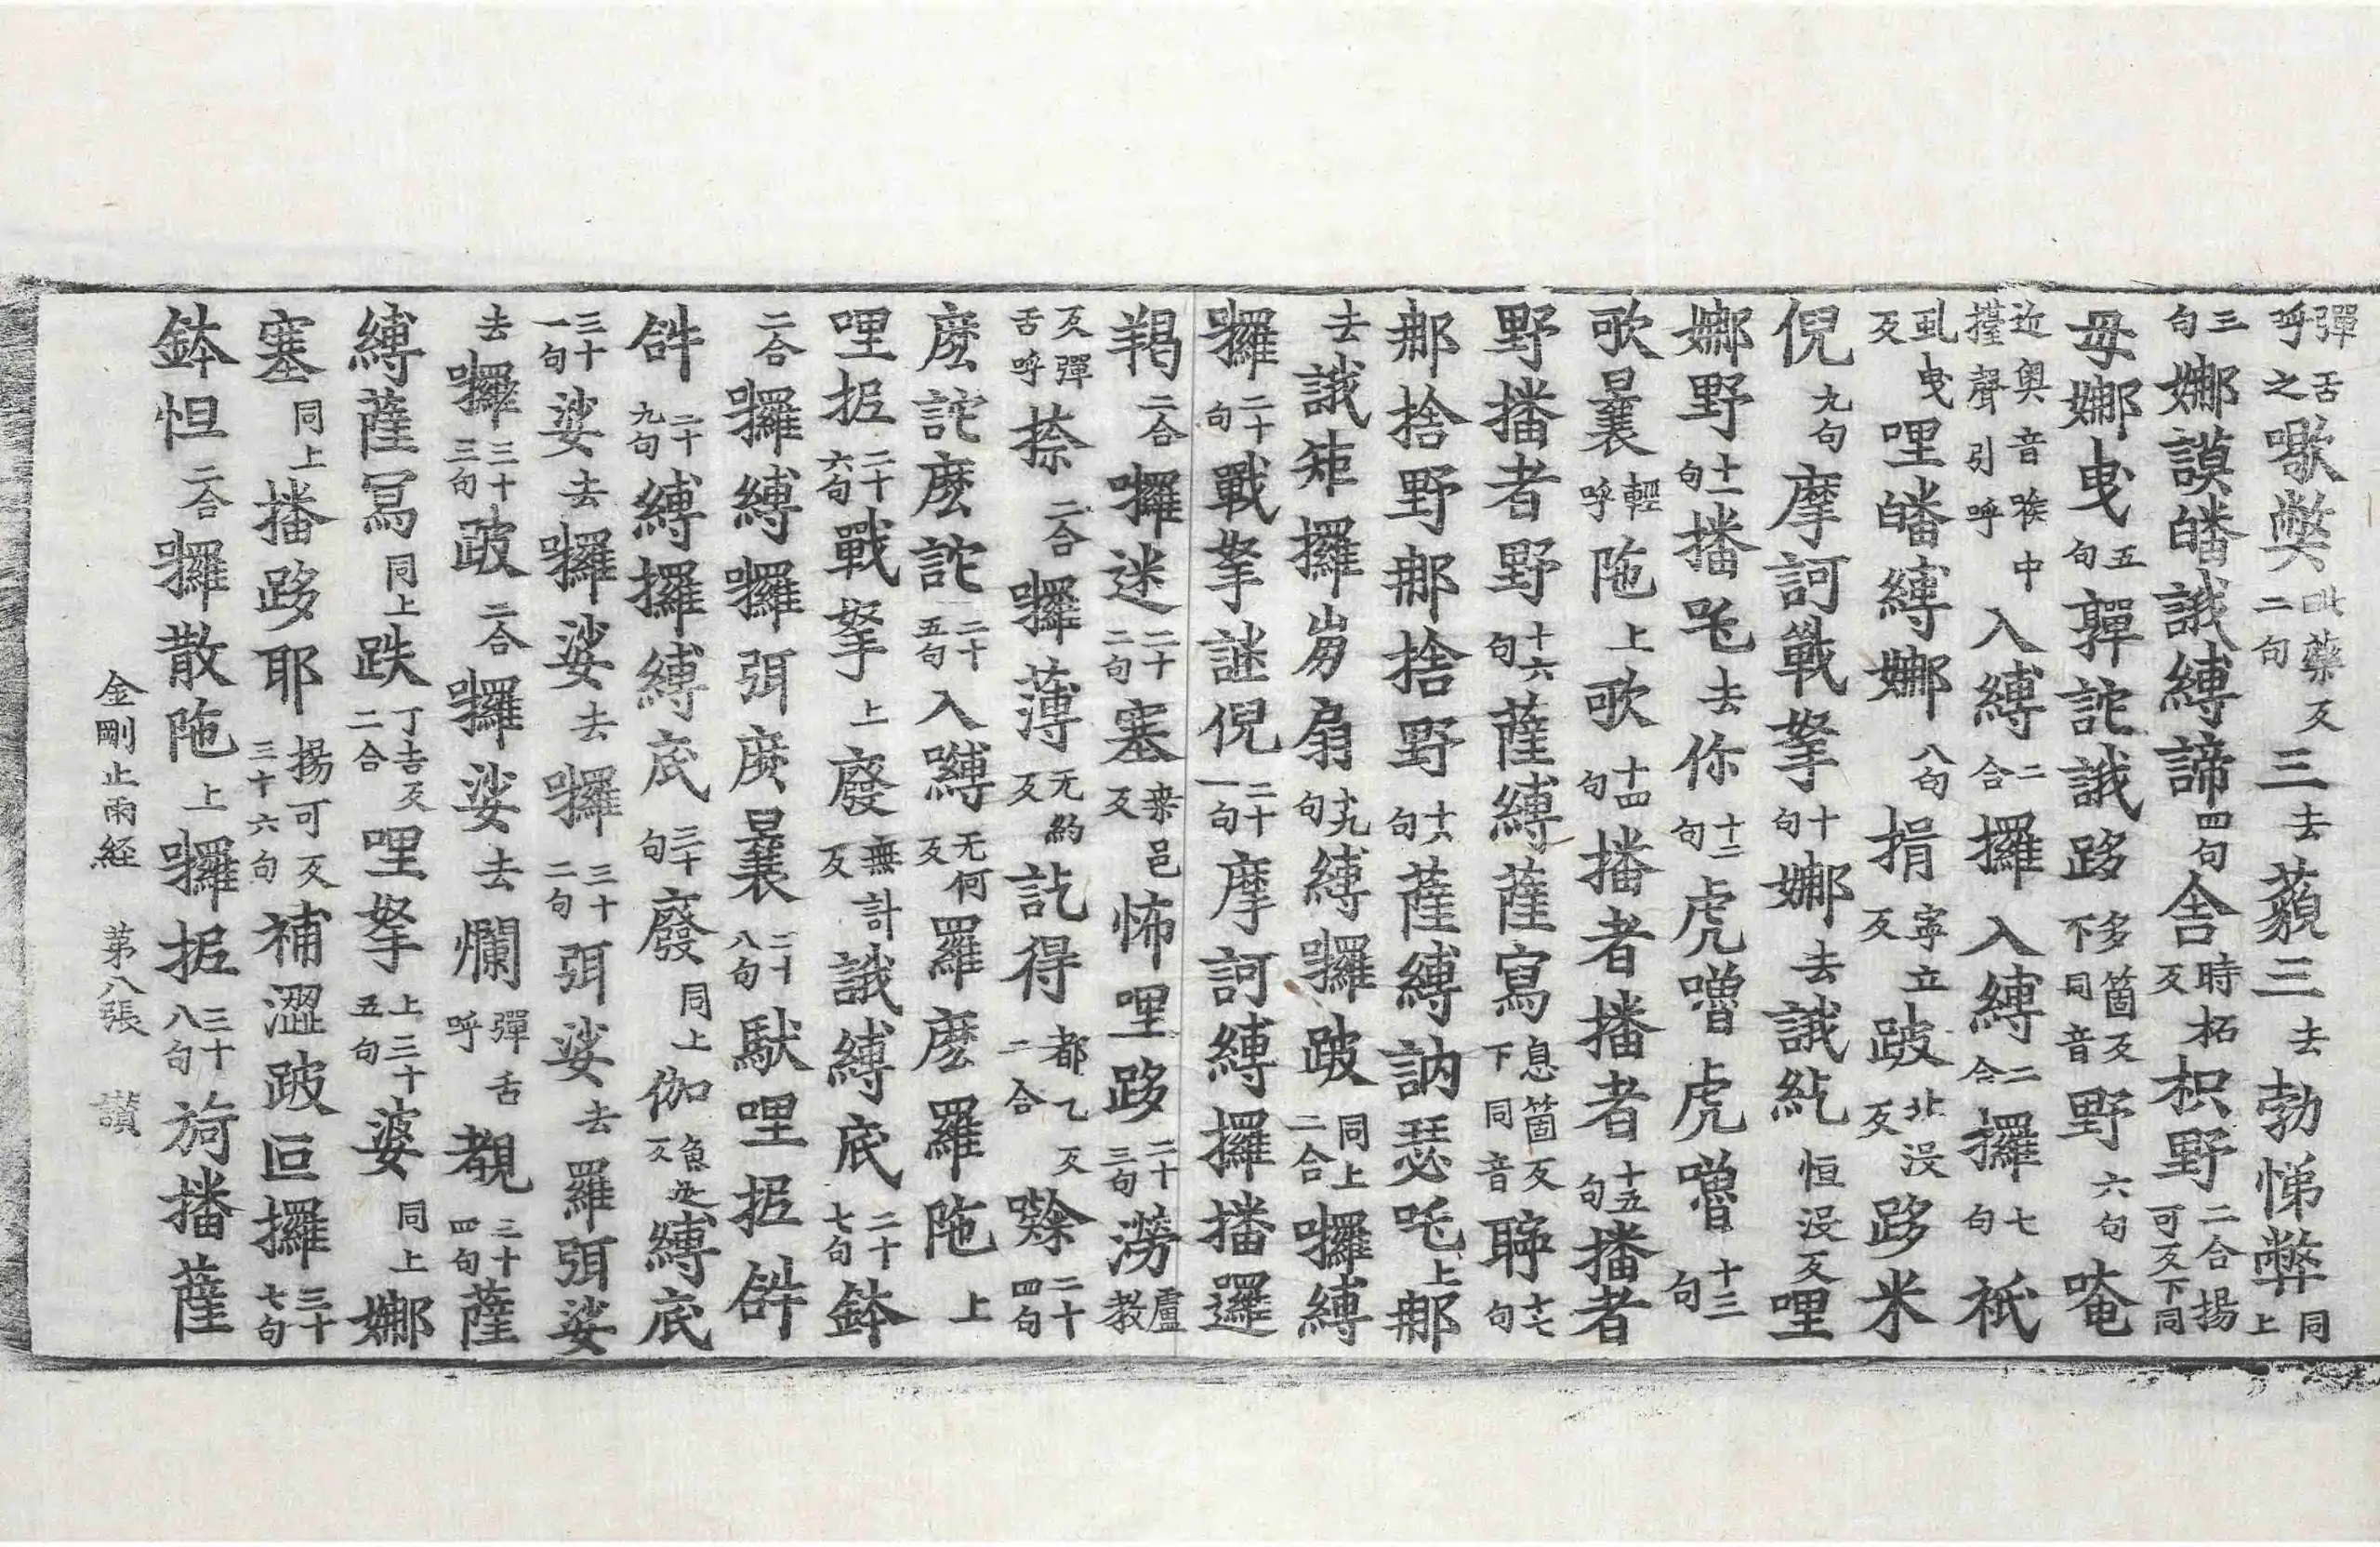 彈舌呼之噷弊毗藥反二句三去藐三去勃悌弊同上
三句娜謨皤誐縛諦四句舍時柘反枳野二合揚可反下同
毋娜曳五句嚲詑誐跢多箇反下同音野六句唵
迄奥音喉中擡聲引呼入縛二合攞入縛二合攞七句祇
虬曳反哩皤縛娜八句捐寧立反跛北沒反跢米
倪九句摩訶戰拏十句娜去誐紇恒沒反哩
娜野十一句播㲉去你十二句虎嚕虎嚕十三句
歌曩輕呼陁上歌十四句播者播者十五句播者
野播者野十六句薩縛薩寫息箇反下同音聹十七句
那捨野那捨野十八句薩縛訥瑟吒上那
去誐矩攞崱扇十九句縛囉跛同上二合囉縛
囉二十句戰拏謎倪二十一句摩訶縛攞播邏
羯二合囉迷二十二句塞桒邑反怖哩跢二十三句澇盧教
反彈舌呼捺二合囉薄无約反訖得都乙反二合㘑二十四句
麽詑麽詑二十五句入嚩无何反羅麽羅陁上
哩抳二十六句戰拏上廢無計反誐縛底二十七句鉢
二合囉縛囉弭麽曩二十八句馱哩抳
二十九句縛攞縛底三十句廢同上伽魚迦反縛底
三十一句娑去囉娑去囉三十二句弭娑去羅弭娑
去囉三十三句跛二合囉娑去爛彈舌呼覩三十四句薩
縛薩寫同上跌丁吉反二合哩拏上三十五句婆同上娜
塞同上播跢耶揚可反三十六句補澀跛叵攞三十七句
鉢怛二合囉散陁上攞抳三十八句旖播薩
金剛止雨経　第八張　讃